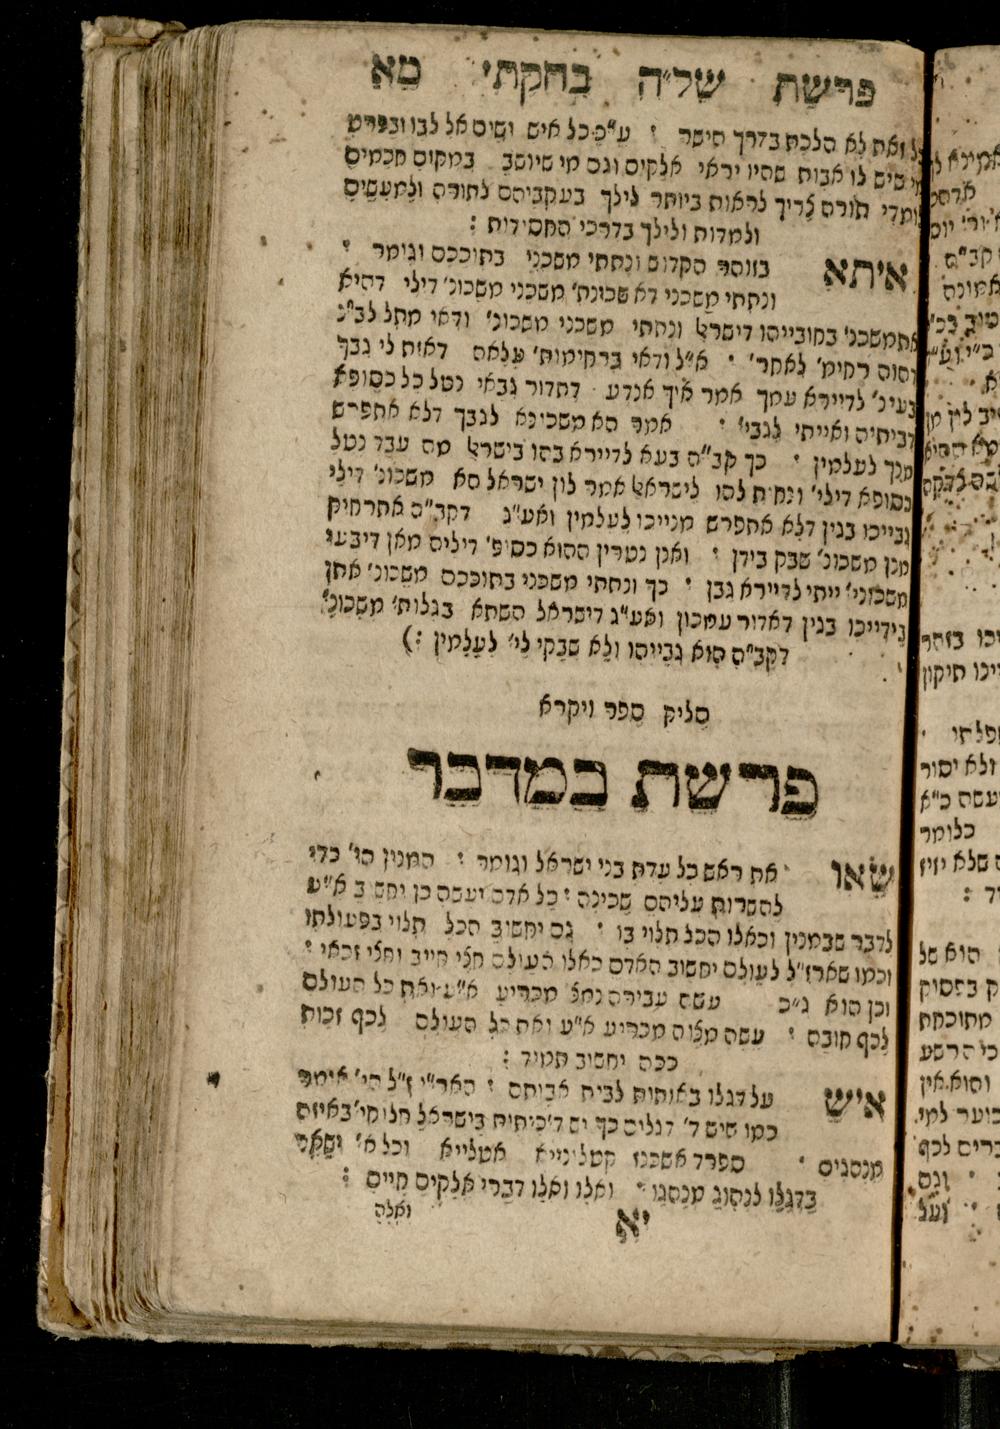 פרשת של״ה בחקתי מא
ואת לא הלכת בדרך הישר : ע״כ כל איש ישים אל לבו ובפרט
מי שיש לו אבות שהיו יראי אלקים וגם מי שיושב במקום חכמים
לומדי תורה צריך לראות ביותר לילך בעקביהם לתורה ולמעשים
ולמדות ולילך בדרכי החסידות :
איתא בזוהר הקדוש ונתתי משכני בתוככם וגומר :
ונתתי משכני דא שכינת׳ משכני משכונ׳ דילי דהיא
אתמשכנ׳ בחובייהו דישראל ונתתי משכני משכונ׳ ודאי מתל לב״נ
דהוה רחימ׳ לאחר׳ · א״ל ודאי ברחימות׳ עלאה דאית לי גבך
בעינ׳ לדיירא עמך אמר איך אנדע דתדור גבאי נטל כל כסופא
דביתיה ואייתי לגבי׳ · אמר הא משכינא לגבך דלא אתפרש
מנך לעלמין · כך קב״ה בעא לדיירא בהו בישראל מה עבד נטל
כסופא דילי׳ ונחית להו לישראל אמר לון ישראל הא משכונ׳ דילי
גבייכו בגין דלא אתפרש מנייכו לעלמין ואע״ג דקב״ה אתרחיק
מנן משכונ׳ שבק בידן · ואנן נטרין ההוא כסופ׳ דיליה מאן דיבעי
משכוני׳ ייתי לדיירא גבן · כך ונתתי משכני בתוככם משכונ׳ אתן
בידייכו בגין דאדור עמכון ואע״ג דישראל השתא בגלות׳ משכונ׳
דקב״ה הוא גבייהו ולא שבקי לי׳ לעלמין :)
סליק ספר ויקרא
פרשת במדבר
שאו את ראש כל עדת בני ישראל וגומר : המנין הי׳ כדי
להשרות עליהם שכינה : כל אדם יעשה כן יחשוב א״ע
לדבר שבמנין וכאלו הכל תלוי בו : גם יחשוב הכל תלוי בפעולתו
וכמו שארז״ל לעולם יחשוב האדם כאלו העולם חצי חייב וחצי זכאי :
וכן הוא ג״כ עשה עבירה נמצא מכריע א״ע ואת כל העולם
לכף חובה : עשה מצוה מכריע א״ע ואת כל העולם לכף זכות
ככה יחשוב תמיד :
איש על דגלו באותות לבית אבותם : האר״י ז״ל הי׳ אומר
כמו שיש ד׳ דגלים כך יש ד׳ כיתות בישראל חלוקי׳ באיזה
מנהגים · ספרד אשכנז קטלונייא אטלייא וכל א׳ ישאר
בדגלו לנהוג מנהגו · ואלו ואלו דברי אלקים חיים :
יא ואלה